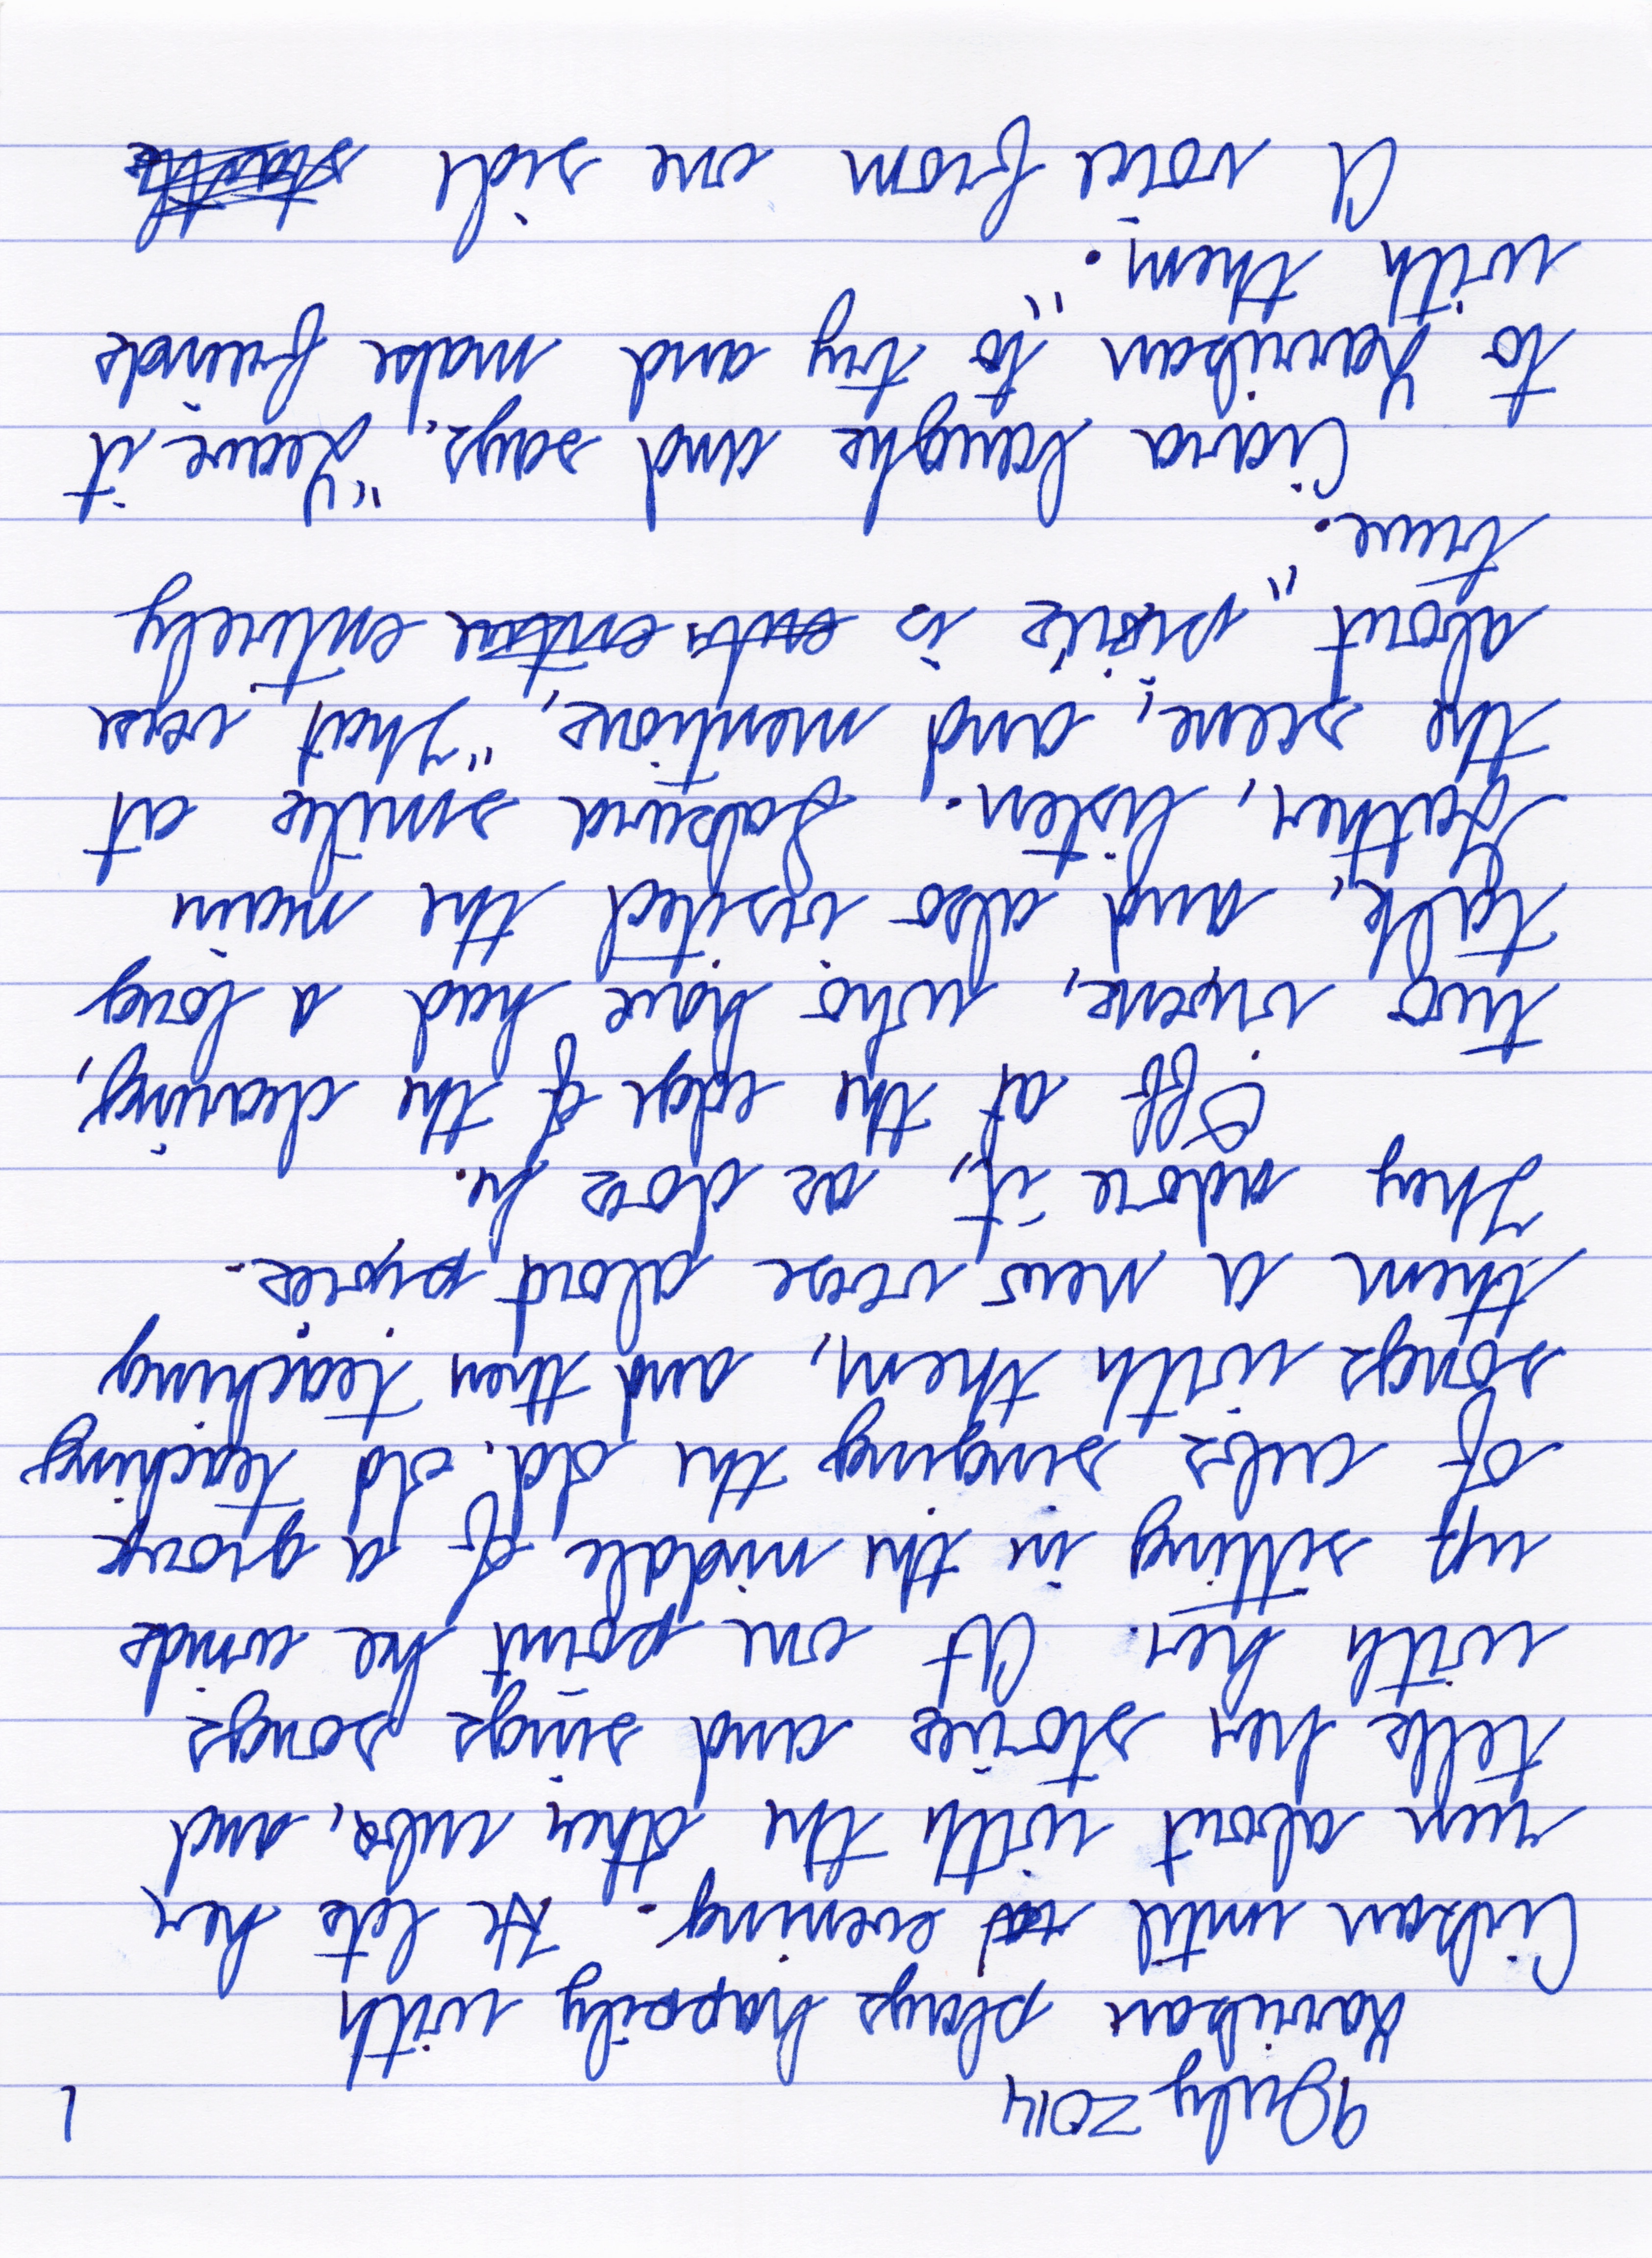 9 July 2014 1
Harriban plays happily with
Cibran until evening. He lets her
run about with the other cubs, and
tells her stories and sings songs
with her. At one point he winds
up sitting in the middle of a group
of cubs singing the old. old teaching
songs with them, and then teaching
them a new verse about pixies.
They adore it, as does he.
Off at the edge of the clearing,
two vixens, who have had a long
talk, and also visited the main
Gather, listen. Sabina smiles at
the scene, and mentions, "That verse
about pixies is entirely
true."
Ciara laughs and says, "Leave it
to Harriban to try and make friends
with them."
A voice from one side